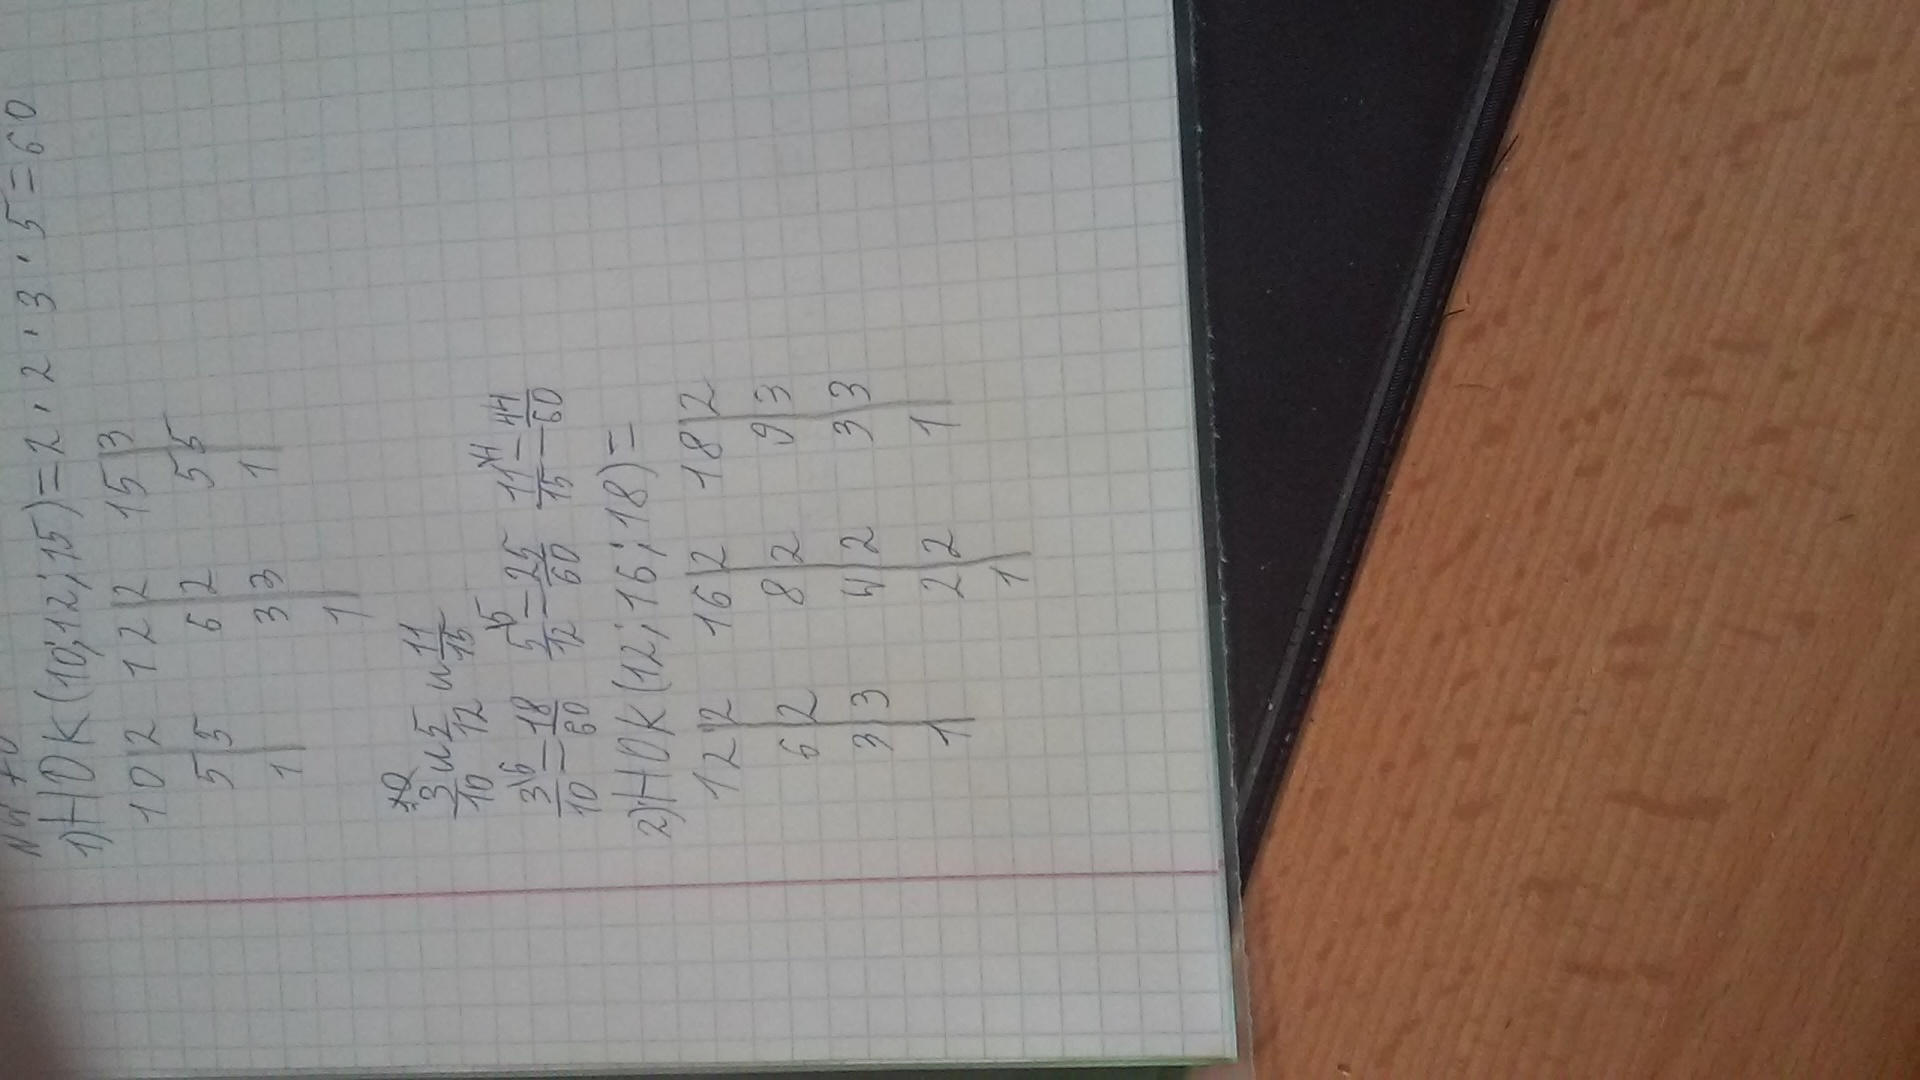 1) НОК (10; 12; 15) = 2 · 2 · 3 · 5 = 60
10 | 2   12 | 2   15 | 3
5 | 5   6 | 2   5 | 5
1   3 | 3   1
1
3/10 и 5/12 и 11/15
3\6/10 = 18/60   5\5/12 = 25/60   11\4/15 = 44/60
2) НОК (12; 16; 18) =
12 | 2   16 | 2   18 | 2
6 | 2   8 | 2   9 | 3
3 | 3   4 | 2   3 | 3
1   2 | 2   1
1